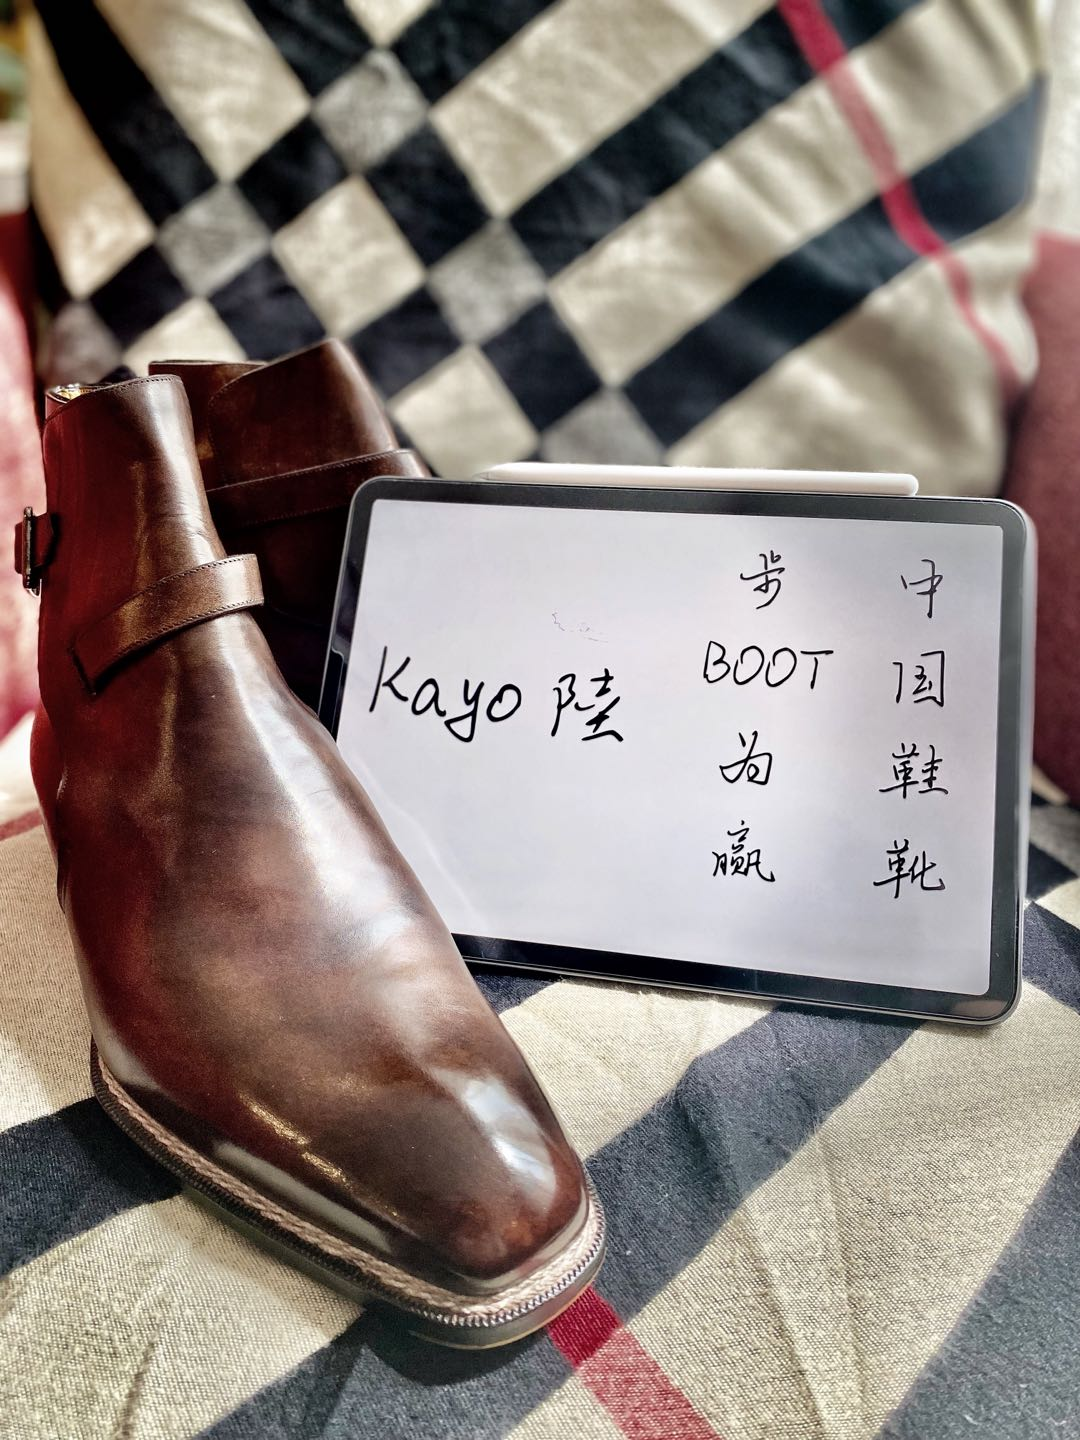 中国鞋靴
步BOOT为赢
Kayo 陸